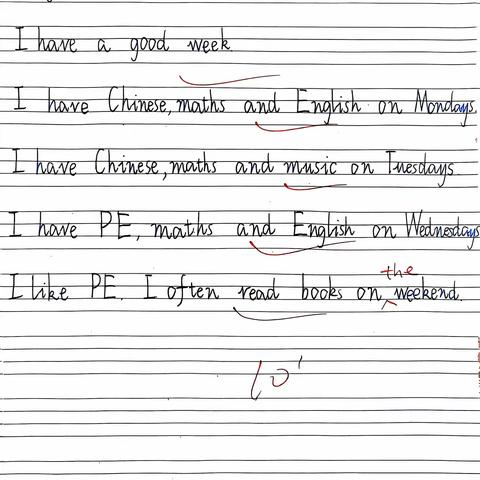 I have a good week
I have Chinese, maths and English on Mondays.
I have Chinese, maths and music on Tuesdays
I have PE, maths and English on Wednesdays
the
I like PE. I often read books on weekend.
10'